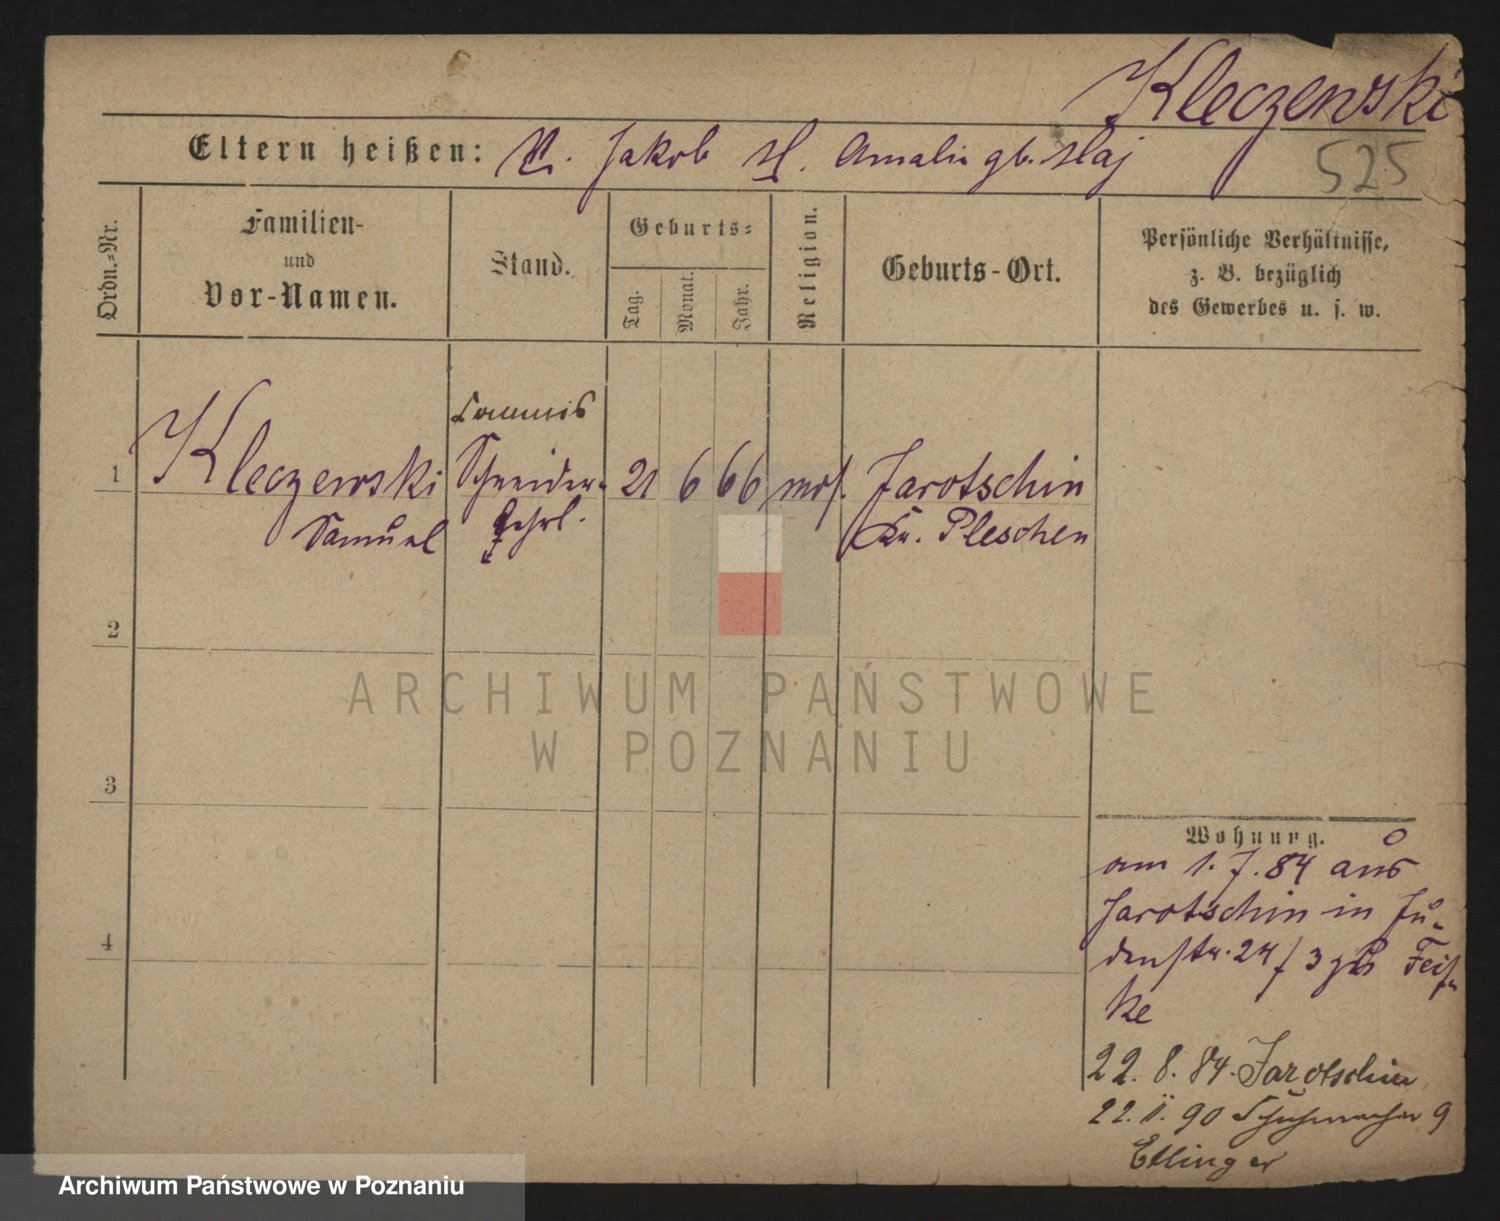 Kleczewski
Eltern heißen: V. Jakob M. Amalie gb. Maj
525
Ordn.-Nr.
Familien-
und
Vor-Namen.
Stand.
Geburts-
Tag.
Monat.
Jahr.
Religion.
Geburts-Ort.
Persönliche Verhältnisse,
z. B. bezüglich
des Gewerbes u. s. w.
Commis
1 Kleczewski Schneider- 21 6 66 mos. Jarotschin
Samuel Lehrl. Kr. Pleschen
2
3
4
Wohnung.
am 1. 7. 84 aus
Jarotschin in Ju-
denstr. 24/3 Feis-
ke
22. 8. 84. Jarotschin
22. II. 90 Schuhmacher 9
Etlinger
ARCHIWUM PAŃSTWOWE
W POZNANIU
Archiwum Państwowe w Poznaniu